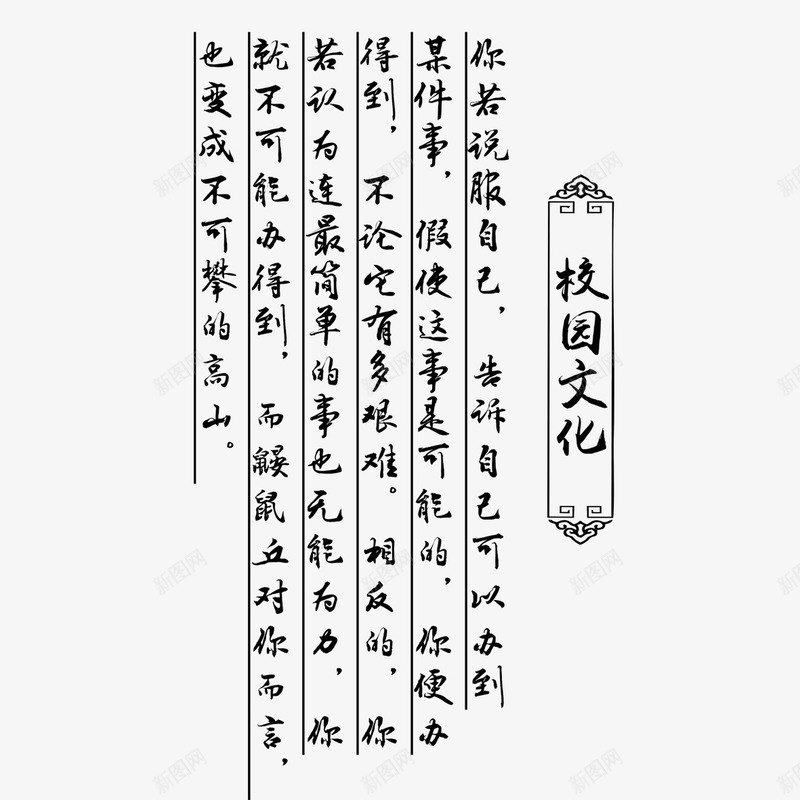 校园文化
你若说服自己，告诉自己可以办到
某件事，假使这事是可能的，你便办
得到，不论它有多艰难。相反的，你
若认为连最简单的事也无能为力，你
就不可能办得到，而鼹鼠丘对你而言，
也变成不可攀的高山。
新图网